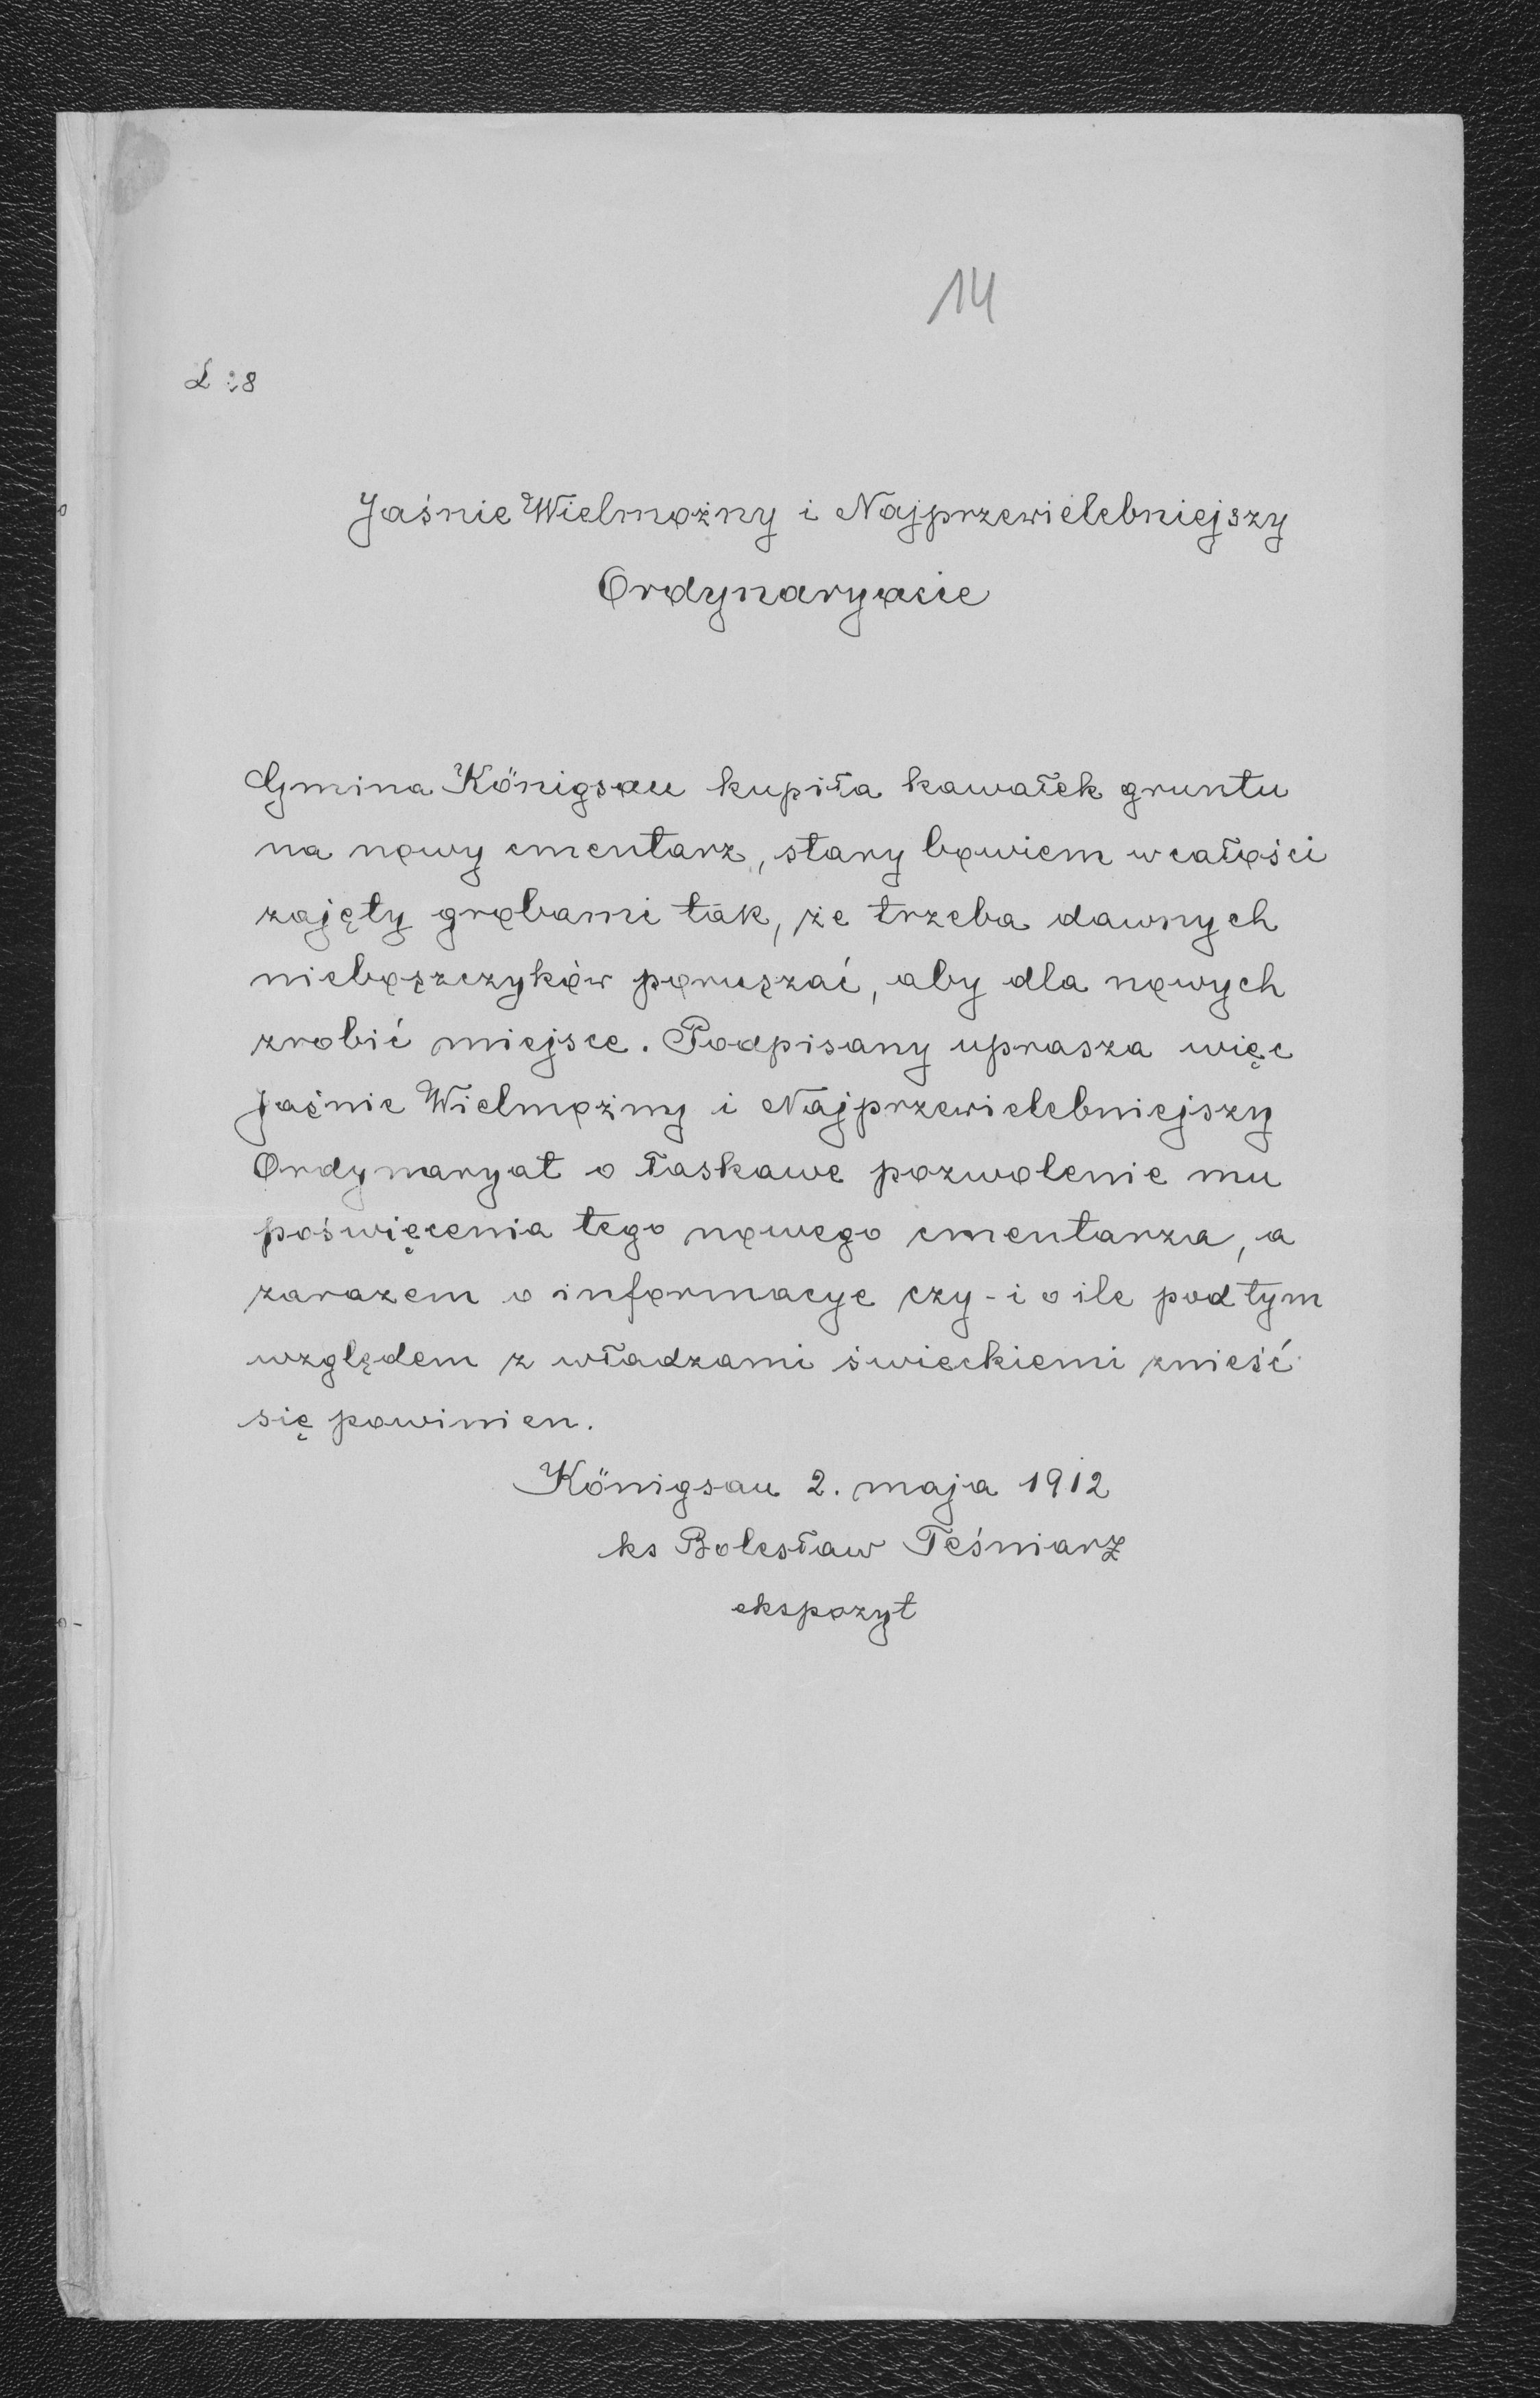 14
L :8
Jaśnie Wielmożny i Najprzewielebniejszy
Ordynaryacie
Gmina Königsau kupiła kawałek gruntu
na nowy cmentarz, stary bowiem w całości
zajęty grobami tak, że trzeba dawnych
nieboszczyków poruszać, aby dla nowych
zrobić miejsce. Podpisany uprasza więc
Jaśnie Wielmożny i Najprzewielebniejszy
Ordynaryat o łaskawe pozwolenie mu
poświęcenia tego nowego cmentarza, a
zarazem o informacye czy - i o ile pod tym
względem z władzami świeckiemi znieść
się powinien.
Königsau 2. maja 1912
ks Bolesław Teśniarz
ekspozyt